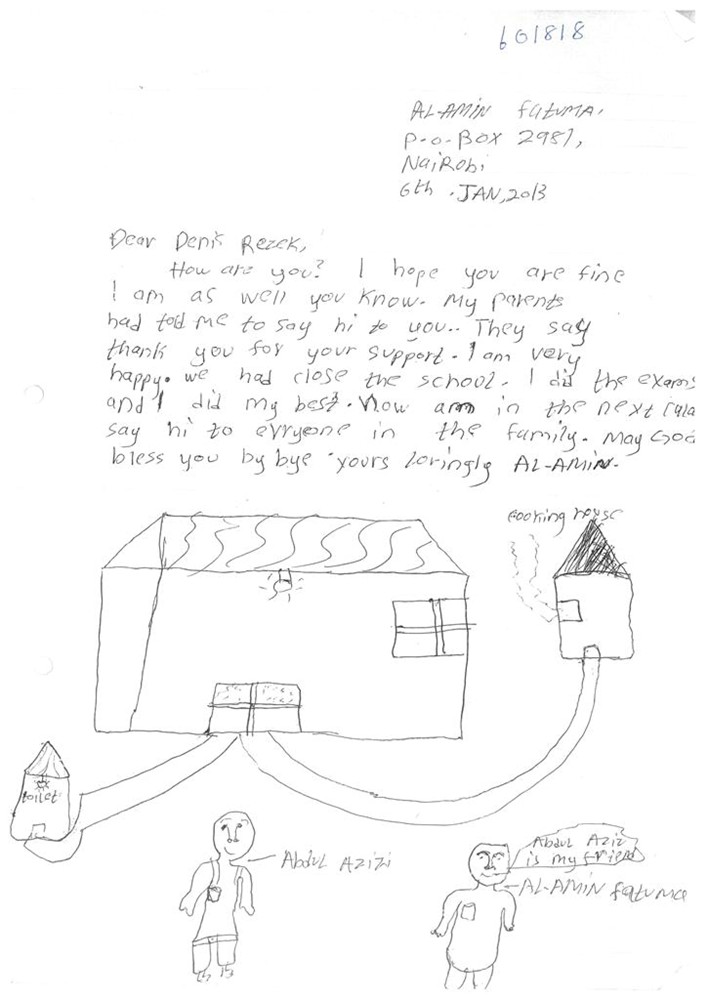 601818
AL-AMIN fatuma,
P.o.Box 2981,
NaiRobi
6th .JAN,2013
Dear Denis Rezek,
How are you? I hope you are fine
I am as well you know. My parents
had told me to say hi to you.. They say
thank you for your support. I am very
happy. we had close the school. I did the exams
and I did my best. Now am in the next
say hi to evryone in the family. May God
bless you by bye yours loringly AL-AMIN.
cooking house
toilet
Abdul Azizi
Abdul Aziz
is my friend
AL-AMIN fatuma